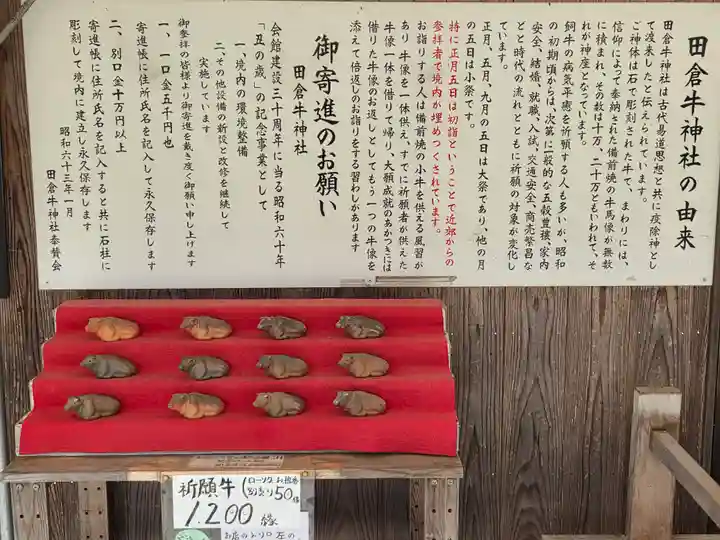 田倉牛神社の由来
田倉牛神社は古代易道思想と共に疫除神とし
て渡来したと伝えられています。
ご神体は石で彫刻された牛で、まわりには、
信仰によって奉納された備前焼の牛馬像が無数
に積まれ、その数は十万、二十万ともいわれて、そ
れが神座となっています。
飼牛の病気平癒を祈願する人も多いが、昭和
の初期頃からは、次第に一般的な五穀豊穣、家内
安全、結婚、就職、入試、交通安全、商売繁昌な
どと時代の流れとともに祈願の対象が変化し
ています。
正月、五月、九月の五日は大祭であり、他の月
の五日は小祭です。
特に正月五日は初詣ということで近郷からの
参拝者で境内が埋めつくされています。
お詣りする人は備前焼の小牛を供える風習が
あり牛像を一体供え、すでに祈願者が供えた
牛像一体を借りて帰り、大願成就のあかつきには
借りた牛像のお返しとしてもう一つの牛像を
添えて倍返しのお詣りをする習わしがあります
御寄進のお願い
田倉牛神社
会館建設三十周年に当る昭和六十年
「丑の歳」の記念事業として
一、境内の環境整備
二、その他設備の新設と改修を継続して
実施しています
御参拝の皆様より御寄進を戴き度く御願い申し上げます
一、一口金五千円也
寄進帳に住所氏名を記入して永久保存します
二、別口金十万円以上
寄進帳に住所氏名を記入すると共に石柱に
彫刻して境内に建立し永久保存します
昭和六十三年一月
田倉牛神社奉賛会
祈願牛
1.200
50